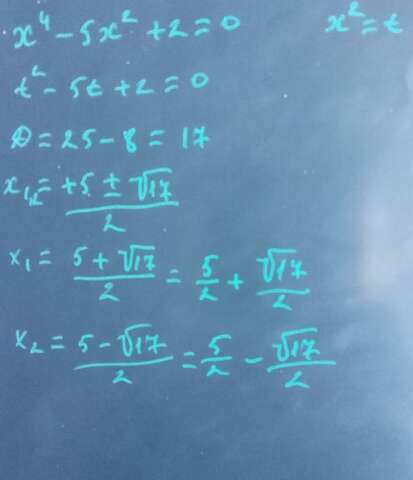 x⁴ - 5x² + 2 = 0 x² = t
t² - 5t + 2 = 0
D = 25 - 8 = 17
x₁,₂ = +5 ± √17 / 2
x₁ = 5 + √17 / 2 = 5/2 + √17/2
x₂ = 5 - √17 / 2 = 5/2 - √17/2